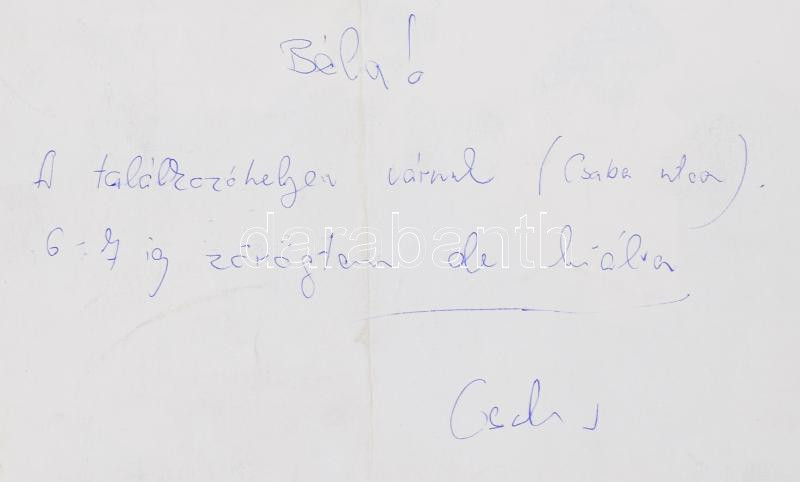 Béla!
A találkozóhelyen várunk (Csaba utca).
6-7 ig zörögtem de hiába
darabanth